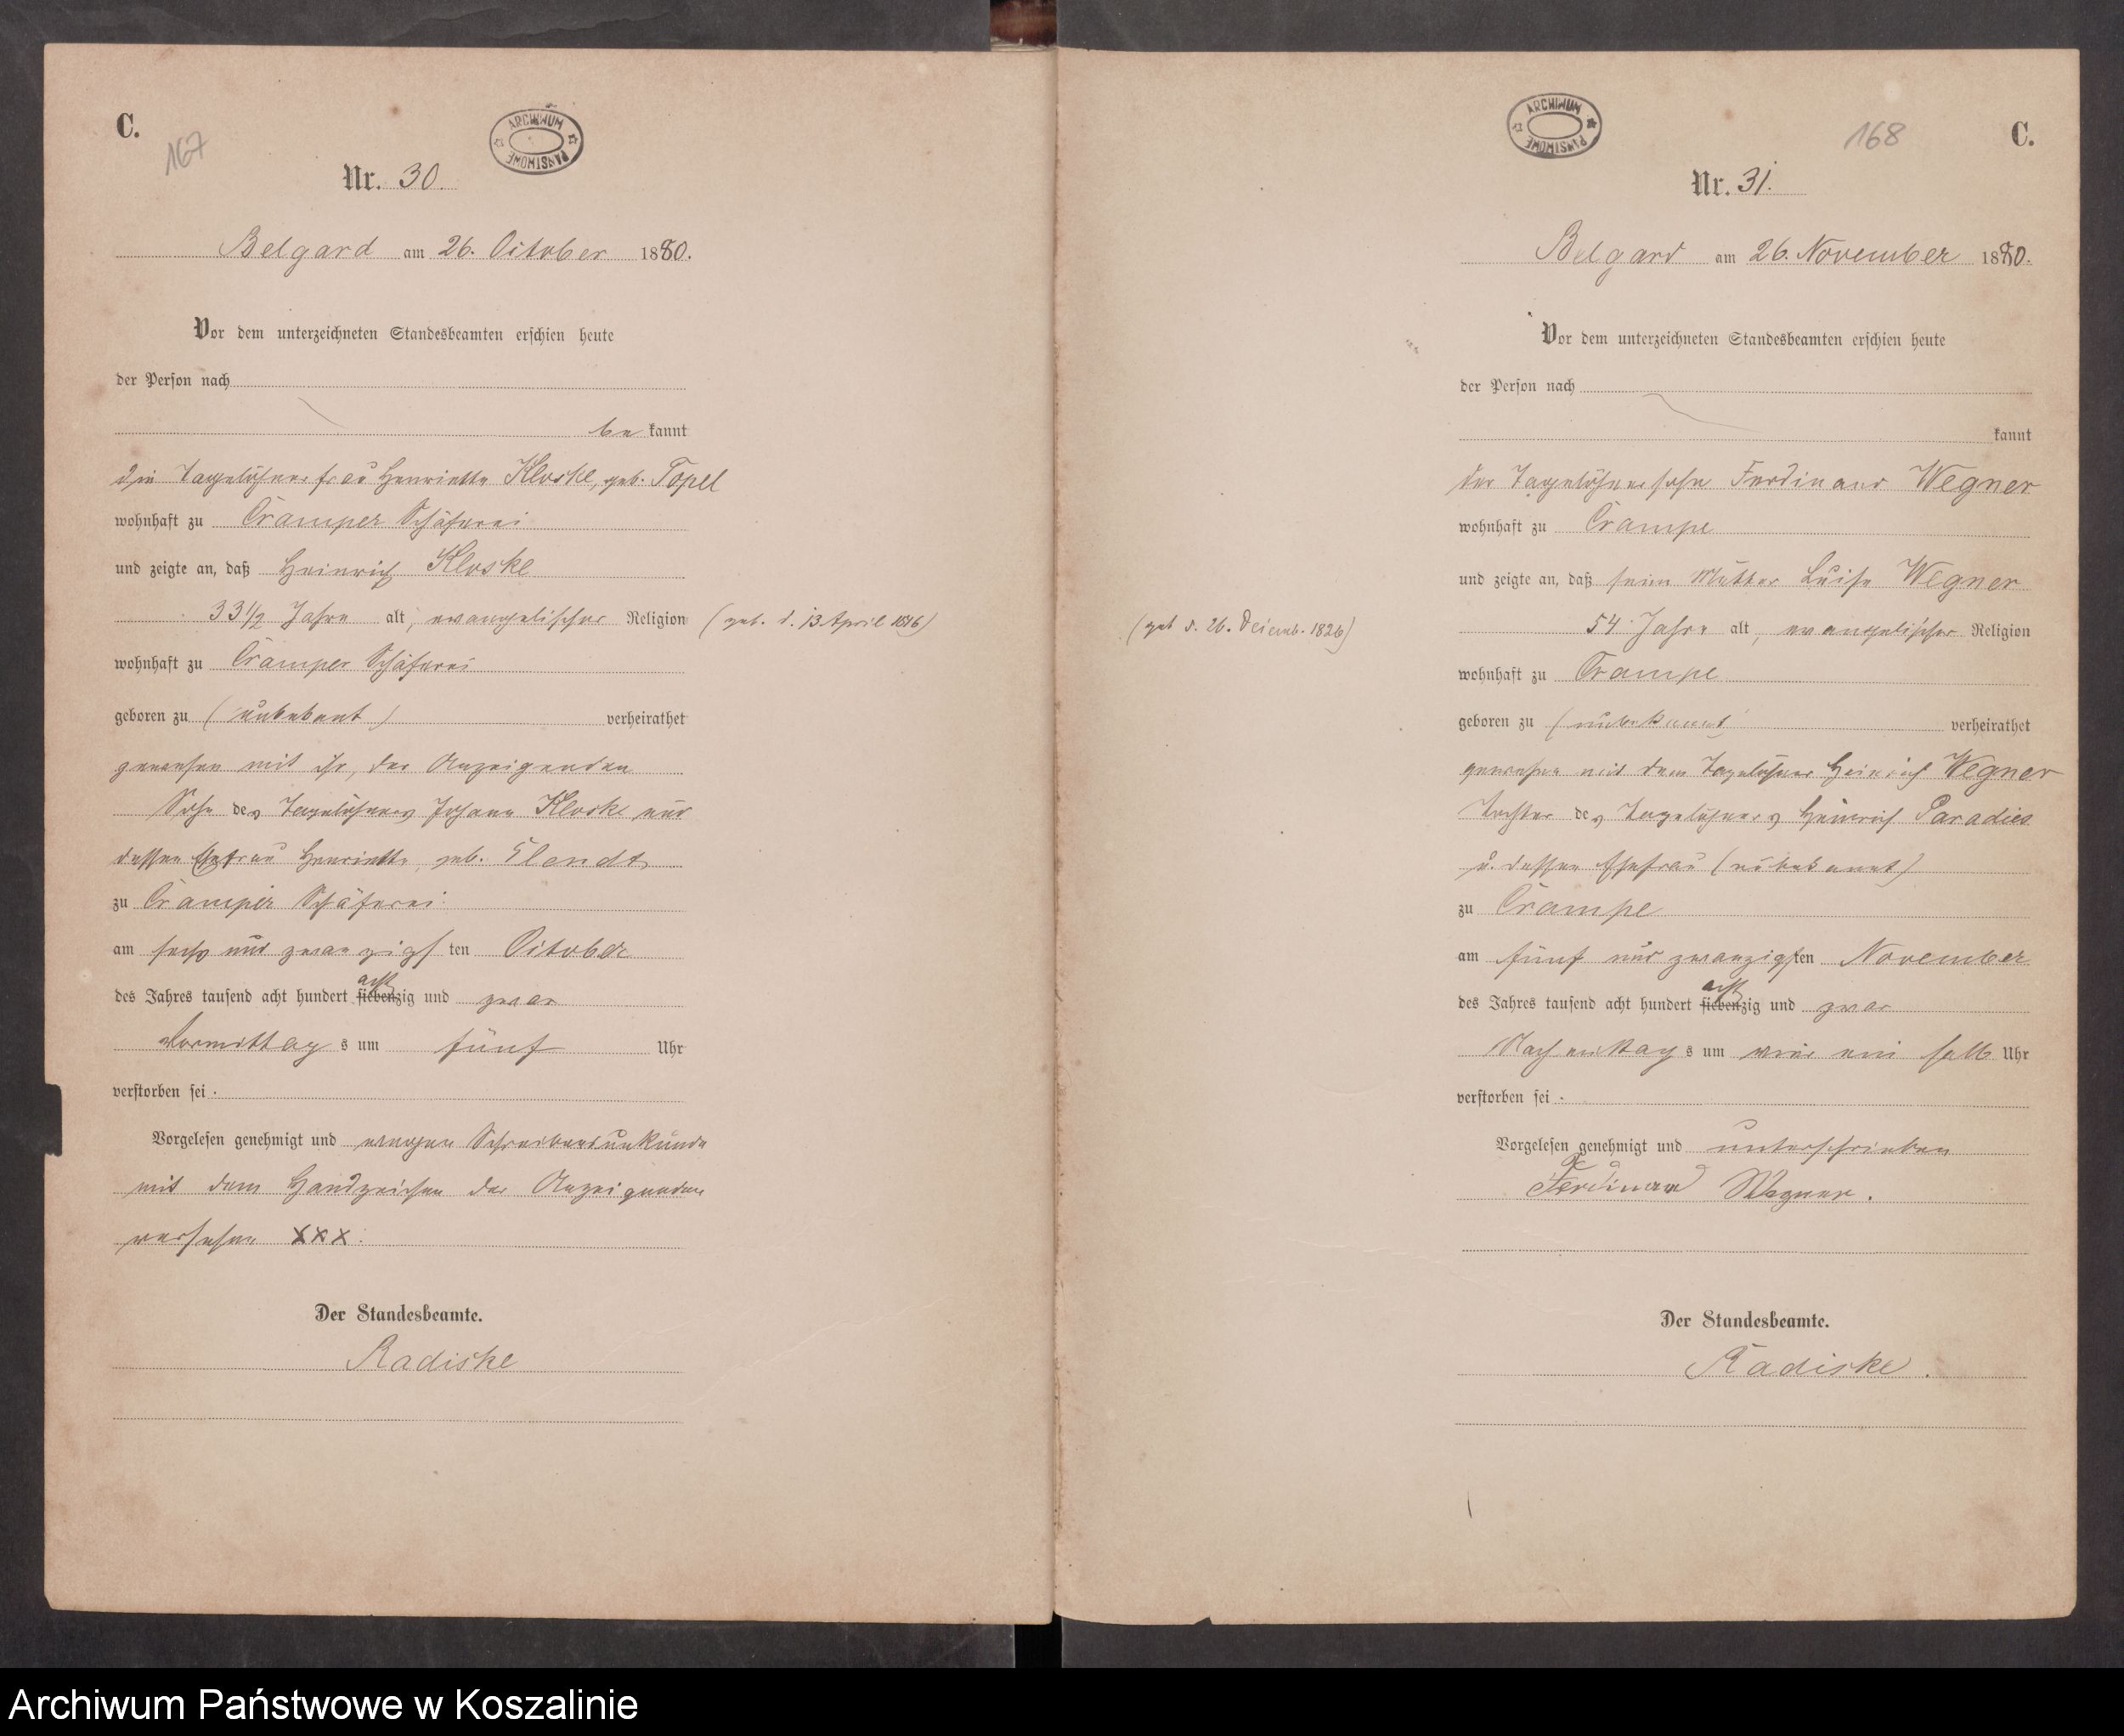 C.
167
ARCHIWUM PAŃSTWOWE
Nr. 30.
Belgard am 26. October 1880.
Vor dem unterzeichneten Standesbeamten erschien heute
der Person nach
be kannt
die Tagelöhnerfrau Henriette Kloske, geb. Topel
wohnhaft zu Cramper Schäferei
und zeigte an, daß Heinrich Kloske
33 1/2 Jahre alt, evangelischer Religion (geb. d. 13 April 1846)
wohnhaft zu Cramper Schäferei
geboren zu (unbekant) verheirathet
gewesen mit ihr, der Anzeigenden
Sohn des Tagelöhners Johann Kloske und
dessen Ehefrau Henriette, geb. Elendt
zu Cramper Schäferei
am sechs und zwanzigs ten October
des Jahres tausend acht hundert siebenzig und zwar
acht
Vormittag s um fünf Uhr
verstorben sei.
Vorgelesen genehmigt und wegen Schreibensunkunde
mit dem Handzeichen der Anzeigenden
versehen XXX.
Der Standesbeamte.
Radiske
C.
168
ARCHIWUM PAŃSTWOWE
Nr. 31.
Belgard am 26. November 1880.
Vor dem unterzeichneten Standesbeamten erschien heute
der Person nach
kannt
der Tagelöhnersohn Ferdinand Wegner
wohnhaft zu Crampe
und zeigte an, daß seine Mutter Luise Wegner
(geb d. 26. Decemb. 1826) 54 Jahre alt, evangelischer Religion
wohnhaft zu Crampe
geboren zu (unbekannt) verheirathet
gewesen mit dem Tagelöhner Heinrich Wegner
Tochter des Tagelöhners Heinrich Paradies
u. dessen Ehefrau (unbekannt)
zu Crampe
am fünf und zwanzigsten November
des Jahres tausend acht hundert siebenzig und zwar
acht
Nachmittag s um ein halb Uhr
verstorben sei.
Vorgelesen genehmigt und unterschrieben
Ferdinand Wegner.
Der Standesbeamte.
Radiske.
Archiwum Państwowe w Koszalinie